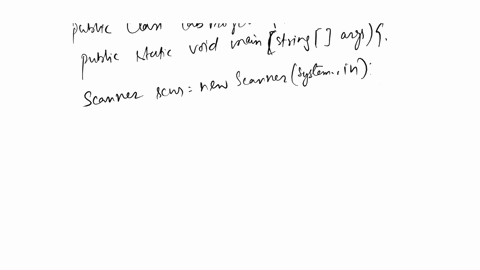 public class
public static void main (string [] args) {.
Scanner scnr = new Scanner (system.in):